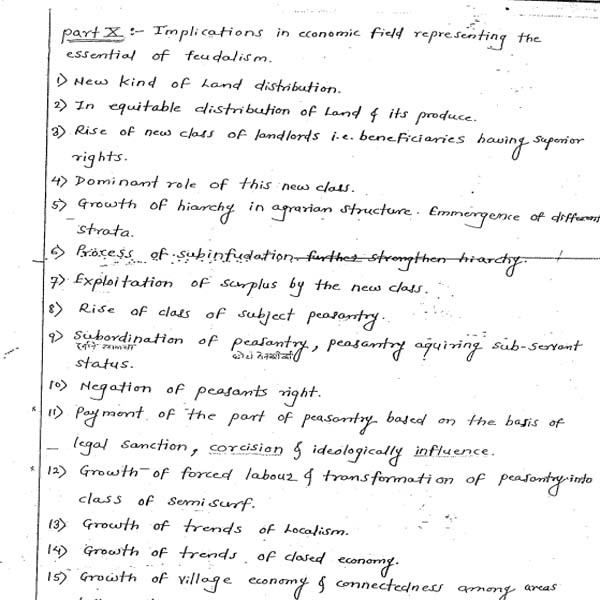 part X :- Implications in economic field representing the
essential of feudalism.
1) New kind of Land distribution.
2) In equitable distribution of Land & its produce.
3) Rise of new class of landlords i.e. beneficiaries having superior
rights.
4) Dominant role of this new class.
5) Growth of hiarchy in agrarian structure. Emmergence of different
strata.
6) Process of subinfudation further strengthen hiarchy.
7) Exploitation of surplus by the new class.
8) Rise of class of subject peasantry.
9) Subordination of peasantry, peasantry aquiring sub-servant
status.
10) Negation of peasants right.
* 11) Payment of the part of peasantry based on the basis of
legal sanction, corcision & ideologically influence.
* 12) Growth of forced labour & transformation of peasantry into
class of semisurf.
13) Growth of trends of Localism.
14) Growth of trends of closed economy.
15) Growth of village economy & connectedness among areas